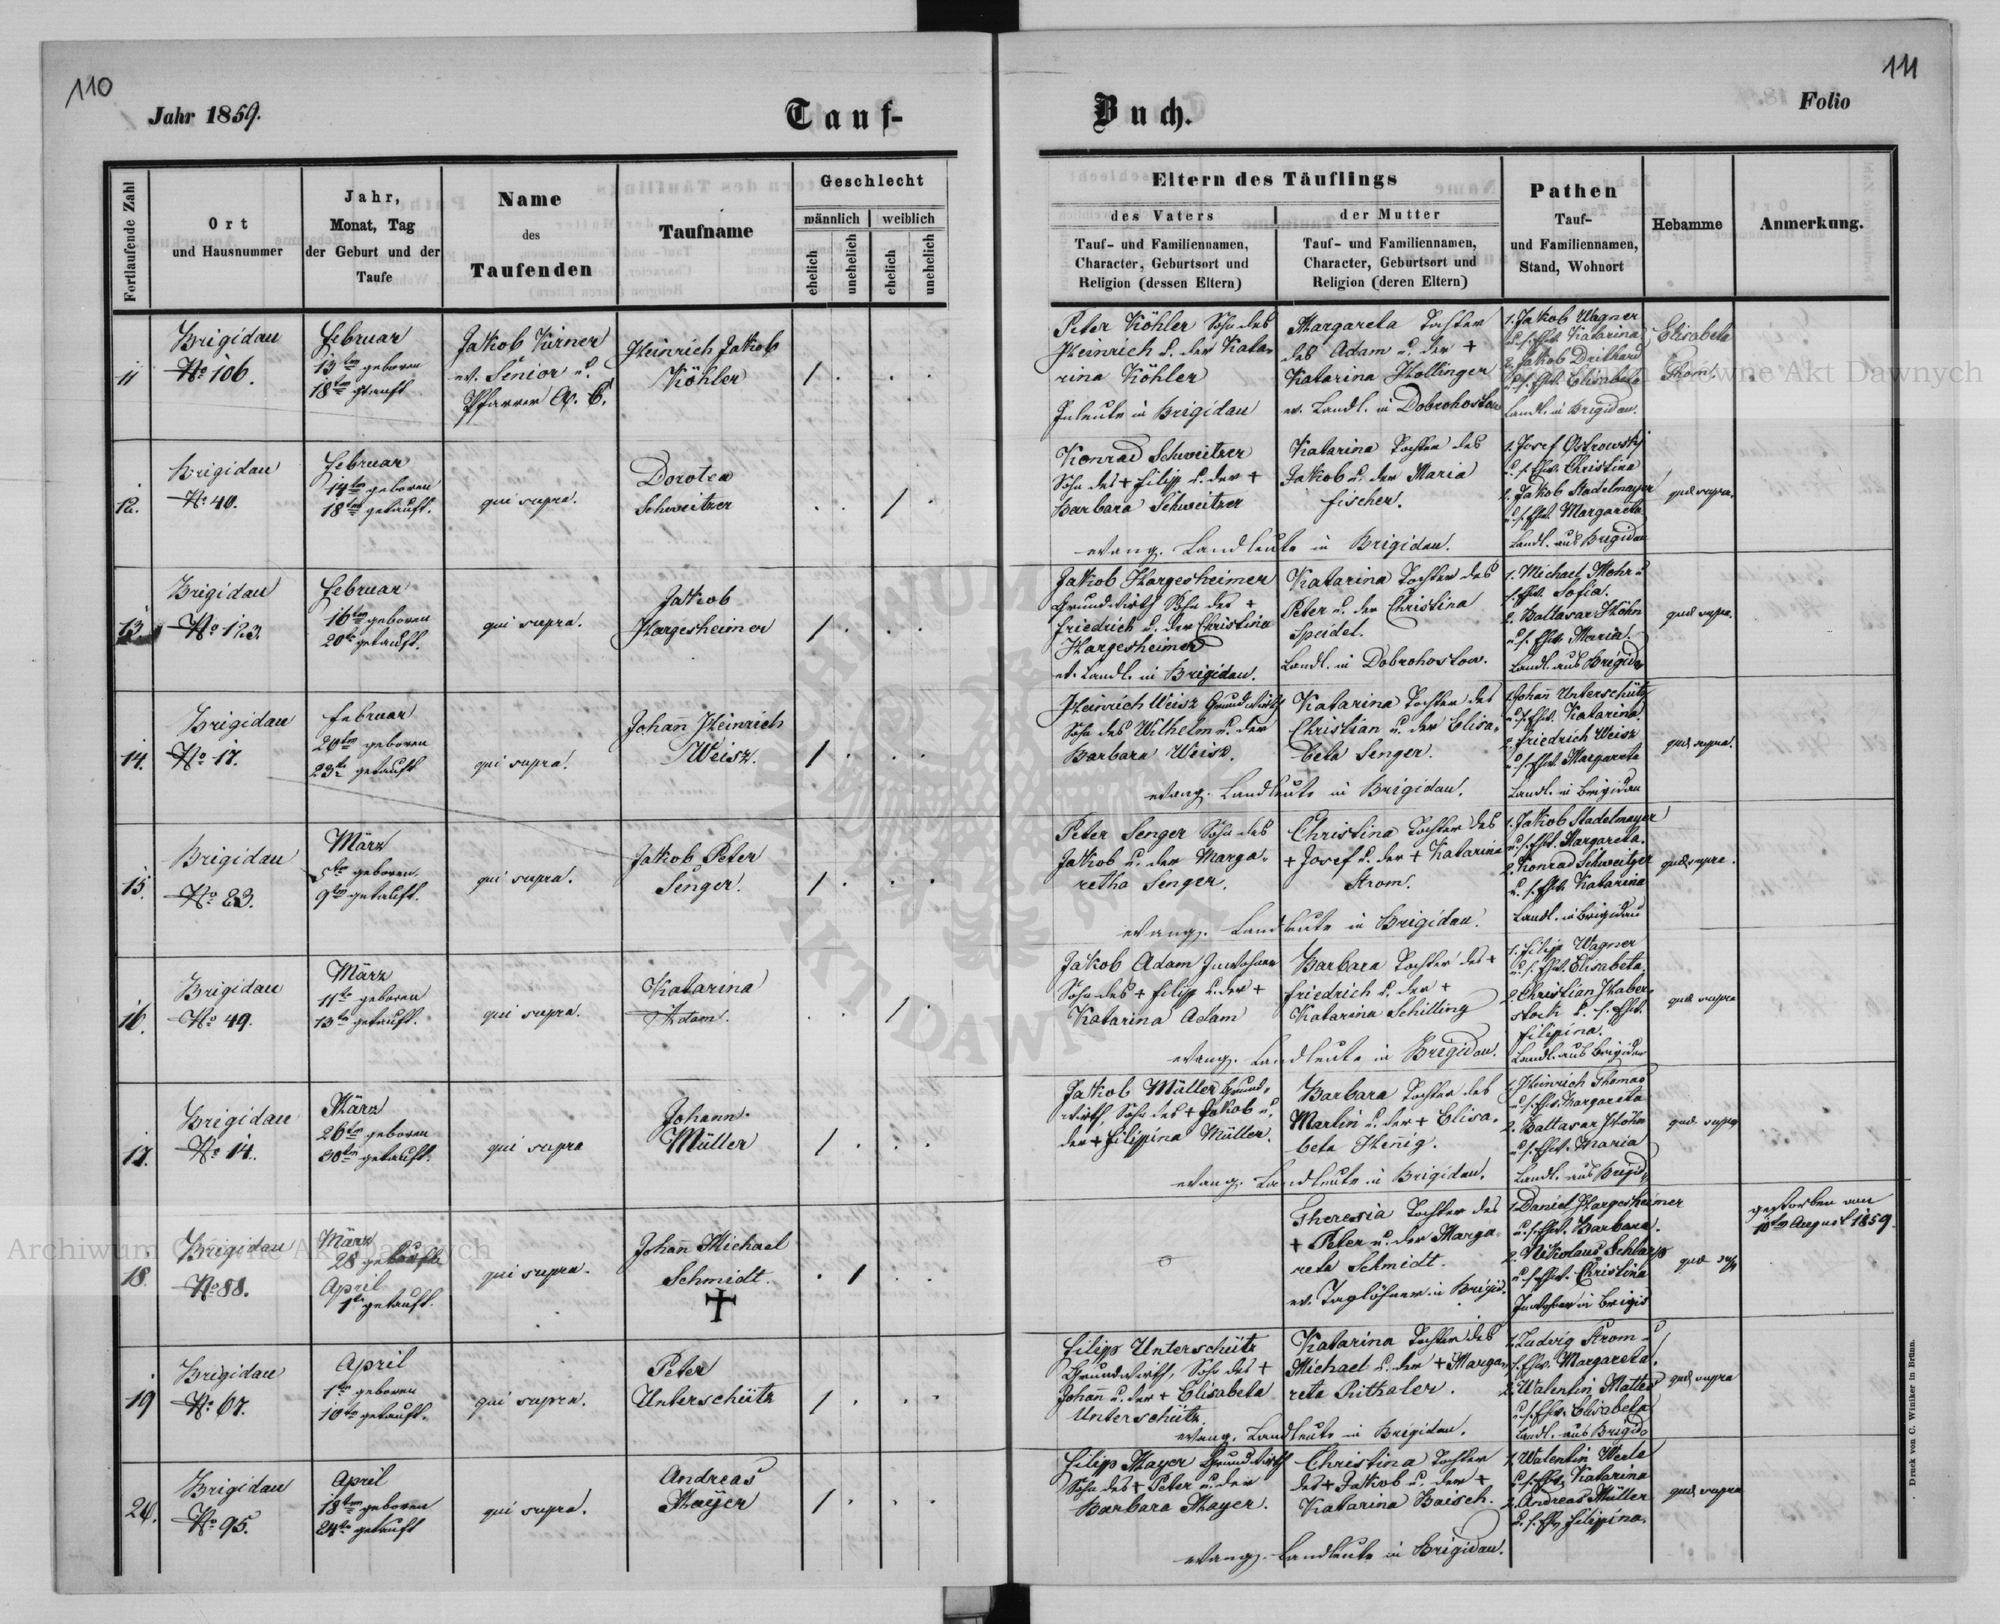 110
111
Jahr 1859.
Tauf-
Buch.
Folio
Fortlaufende Zahl
Ort
und Hausnummer
Jahr,
Monat, Tag
der Geburt und der
Taufe
Name
des
Taufenden
Taufname
Geschlecht
männlich
weiblich
ehelich
unehelich
ehelich
unehelich
Eltern des Täuflings
des Vaters
Tauf- und Familiennamen,
Character, Geburtsort und
Religion (dessen Eltern)
der Mutter
Tauf- und Familiennamen,
Character, Geburtsort und
Religion (deren Eltern)
Pathen
Tauf-
und Familiennamen,
Stand, Wohnort
Hebamme
Anmerkung.
11
Brigidau
No 106.
Februar
13ten geboren
18ten getauft
Jakob Kirner
ev. Senior u.
Pfarrer A. C.
Heinrich Jakob
Köhler
1
Peter Köhler Sohn des
Heinrich u. der Kata-
rina Köhler
in Brigidau
Margareta Tochter
des Adam u. der +
Katarina Hollinger
ev. Landl. in Dobrohostow
1. Jakob Wagner
u. s. Ehw. Katarina
2. Jakob
u. s. Ehw. Elisabeta
Landl. in Brigidau.
Elisabeta
Thom.
12.
Brigidau
No 40.
Februar
14ten geboren
18ten getauft.
qui supra.
Dorotea
Schweitzer
1
Konrad Schweitzer
Sohn des + Filipp u. der +
Barbara Schweitzer
Katarina Tochter des
Jakob u. der Maria
Fischer.
evang. Landleute in Brigidau.
1. Josef Ostrowski
u. s. Ehw. Christina
2. Jakob Stadelmayer
u. s. Ehw. Margareta
Landl. aus Brigidau
quae supra.
13
Brigidau
No 123.
Februar
16ten geboren
20te getauft.
qui supra.
Jakob
Hargesheimer
1
Jakob Hargesheimer
Grundwirth Sohn des +
Friedrich u. der Christina
Hargesheimer
ev. Landl. in Brigidau.
Katarina Tochter des
Peter u. der Christina
Speidel.
Landl. in Dobrohostow.
1. Michael Mohr u
s. Ehw. Sofia.
2. Baltasar Höhn
u. s. Ehw. Maria.
Landl. aus Brigidau
quae supra.
14.
Brigidau
No 17.
Februar
20ten geboren
23te getauft
qui supra.
Johann Heinrich
Weisz.
1
Heinrich Weisz Grundwirth
Sohn des Wilhelm u. der
Barbara Weisz.
Katarina Tochter des
Christian u. der Elisa-
beta Senger.
evang. Landleute in Brigidau.
1. Johann Unterschütz
u. s. Ehw. Katarina
2. Friedrich Weisz
u. s. Ehw. Margareta
Landl. in Brigidau
quae supra.
15.
Brigidau
No 83.
März
5te geboren.
9ten getauft.
qui supra.
Jakob Peter
Senger.
1
Peter Senger Sohn des
Jakob u. der Marga-
retha Senger.
Christina Tochter des
+ Josef u. der + Katarina
Strom.
evang. Landleute in Brigidau.
1. Jakob Stadelmayer
u. s. Ehw. Margareta.
2. Konrad Schweitzer
u. s. Ehw. Katarina
Landl. in Brigidau
quae supra.
16.
Brigidau
No 49.
März
11te geboren
13te getauft.
qui supra.
Katarina
Adam.
1
Jakob Adam Inwohner
Sohn des + Filipp u. der +
Katarina Adam
Barbara Tochter des +
Friedrich u. der +
Katarina Schilling
evang. Landleute in Brigidau.
1. Filipp Wagner
u. s. Ehw. Elisabeta.
2. Christian Haber-
stock u. s. Ehw.
Filipina.
Landl. aus Brigidau
quae supra
17.
Brigidau
No 14.
März
26ten geboren
30ten getauft.
qui supra
Johann
Müller
1
Jakob Müller Grund-
wirth, Sohn des + Jakob u.
der + Filippina Müller.
Barbara Tochter des
Martin u. der + Elisa-
beta Henig.
evang. Landleute in Brigidau.
1. Heinrich Thomas
u. s. Ehw. Margareta
2. Baltasar Höhn
u. s. Ehw. Maria
Landl. aus Brigid.
quae supra
18.
Brigidau
No 88.
März
28
April
1te getauft.
qui supra.
Johann Michael
Schmidt.
1
Theresia Tochter des
+ Peter u. der Marga-
reta Schmidt.
ev. Taglöhner in Brigid.
1. Daniel Hargesheimer
u. s. Ehw. Barbara.
2. Nikolaus Schlarp
u. s. Ehw. Christina
Inwohner in Brigid
quae sup
gestorben am
10ten August 1859.
19
Brigidau
No 67.
April
1te geboren
10te getauft.
qui supra.
Peter
Unterschütz
1
Filipp Unterschütz
Grundwirth, Sohn des +
Johann u. der + Elisabeta
Unterschütz.
Katarina Tochter des
Michael u. der + Marga-
reta Rithaler.
evang. Landleute in Brigidau.
1. Ludwig Strom u
s. Ehw. Margareta.
2. Walentin Mattes
u. s. Ehw. Elisabeta
Landl. aus Brigid.
quae supra
20.
Brigidau
No 95.
April
18ten geboren
24te getauft
qui supra.
Andreas
Mayer
1
Filipp Mayer Grundwirth
Sohn des + Peter u. der
Barbara Mayer.
Christina Tochter
des + Jakob u. der +
Katarina Baisch.
evang. Landleute in Brigidau.
1. Walentin
u. s. Ehw. Katarina
2. Andreas Müller
u. s. Ehw. Filipina.
quae supra
Druck von C. Winiker in Brünn.
Archiwum Główne Akt Dawnych
Archiwum Główne Akt Dawnych
ARCHIWUM
AKT DAWNYCH